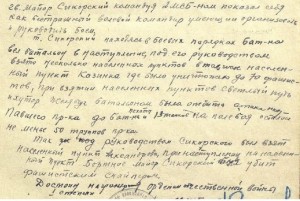 гв. Майор Сикорский командуя 2 МСБ-ном показал себя
как бесстрашный боевой командир умеющий организовать
и руководить боем.
т. Сикорский находясь в боевых порядках бат-на
вел батальон в наступление, под его руководством
взято несколько населенных пунктов в том числе населен-
ный пункт Казанка где было уничтожено до 70 фашис-
тов, при взятии населенных пунктов Светлый путь
хутор батальоном была отбита
пр-ка до батн пехот на поле боя
не менее 50 трупов пр-ка.
Так же под руководством Сикорского был взят
населенный пункт Александровка, при наступлении на населен-
ный пункт майор Сикорский был убит
фашистским снайпером.
Достоин награждения орденом Отечественной войны
степени